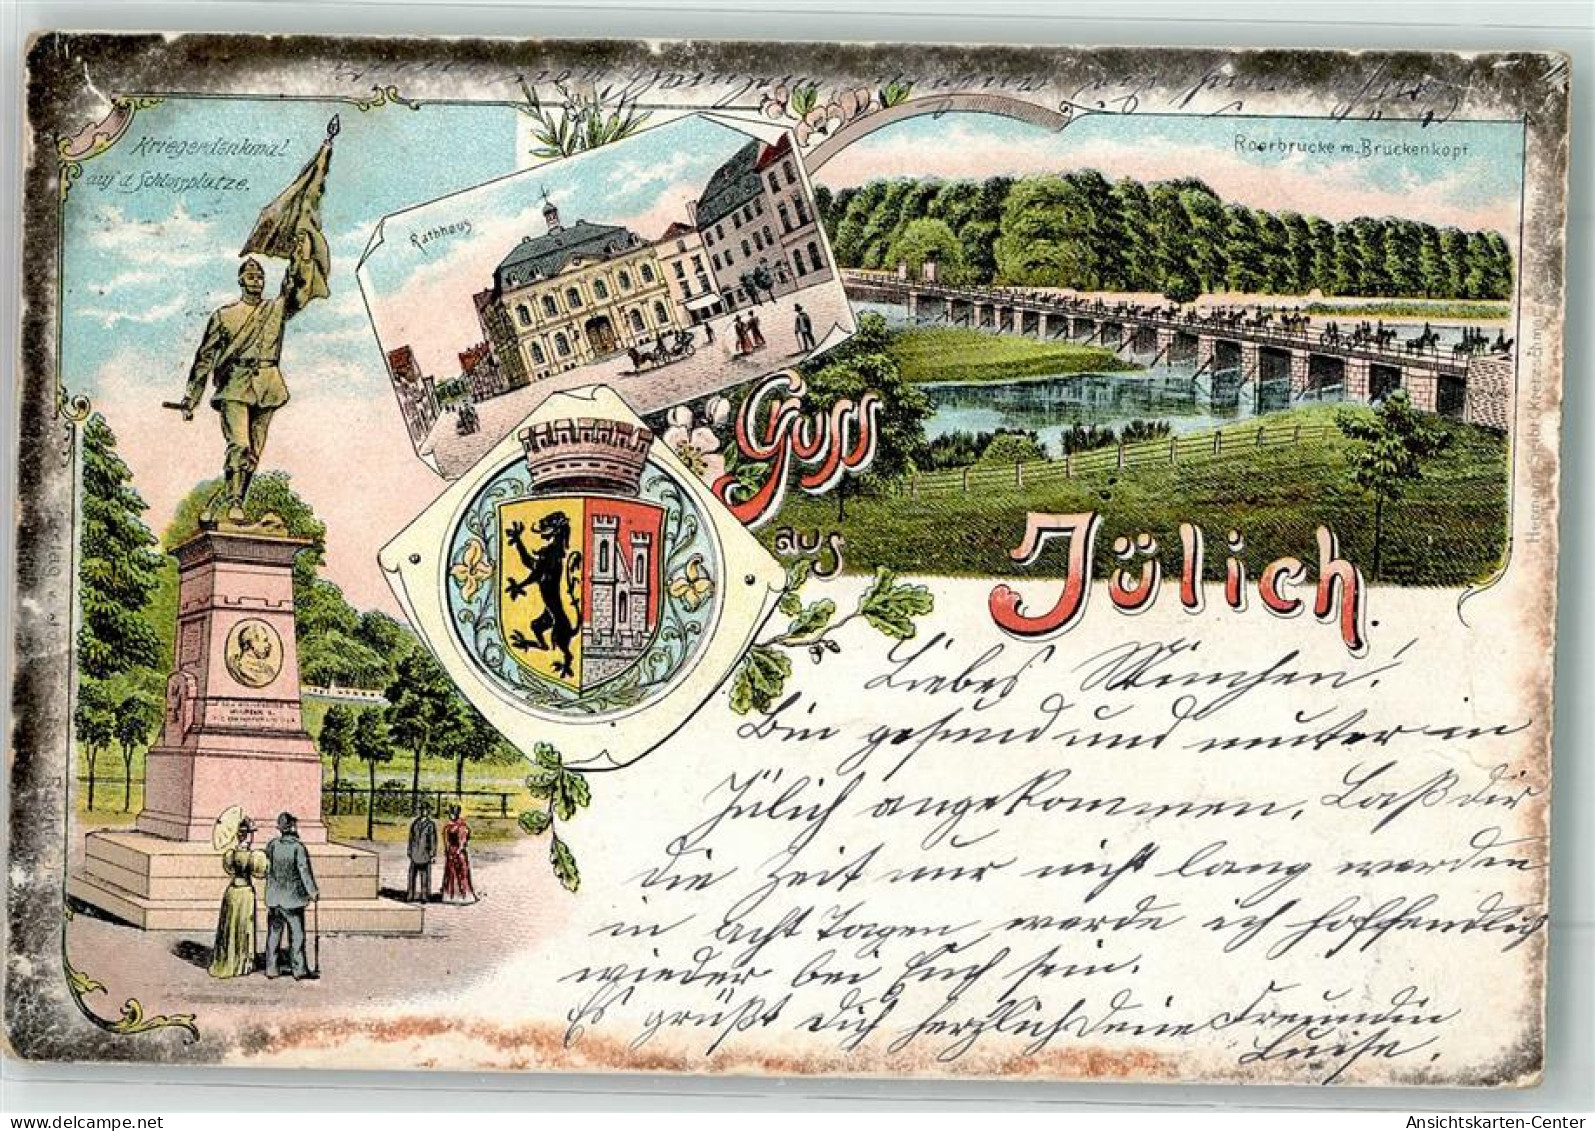 Kriegerdenkmal
auf d. Schlossplatze.
Rathhaus
Roerbrücke m. Brückenkopf
Gruss
aus
Jülich.
Liebes Minchen!
Bin gesund und munter in
Jülich angekommen. Laß dir
die Zeit nur nicht lang werden
in acht Tagen werde ich hoffendlich
wieder bei Euch sein.
Es grüßt Dich herzlich deine Freundin
Luise.
AnsichtsKarten-Center